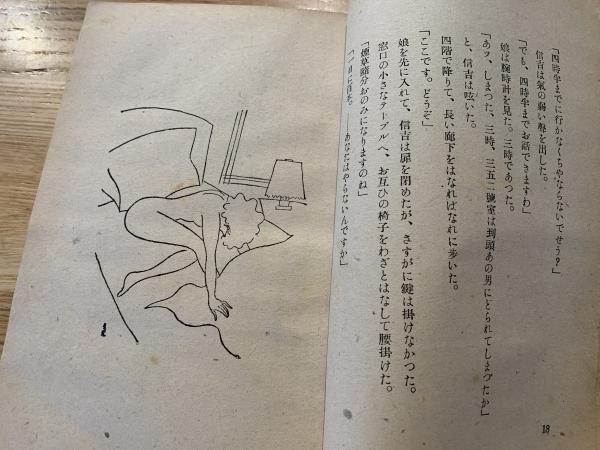 「四時半までに行かなくちやならないでせう?」
信吉は氣の弱い聲を出した。
「でも、四時半までお話できますわ」
娘は腕時計を見た。三時であつた。
「あツ、しまつた、三時、三五二號室は到頭あの男にとられてしまつたか」
と、信吉は呟いた。
四階で降りて、長い廊下をはなればなれに歩いた。
「ここです。どうぞ」
娘を先に入れて、信吉は扉を閉めたが、さすがに鍵は掛けなかつた。
窓口の小さなテーブルへ、お互ひの椅子をわざとはなして腰掛けた。
「煙草隨分おのみになりますのね」
「一日に百本。――あなたはやらないんですか」
18